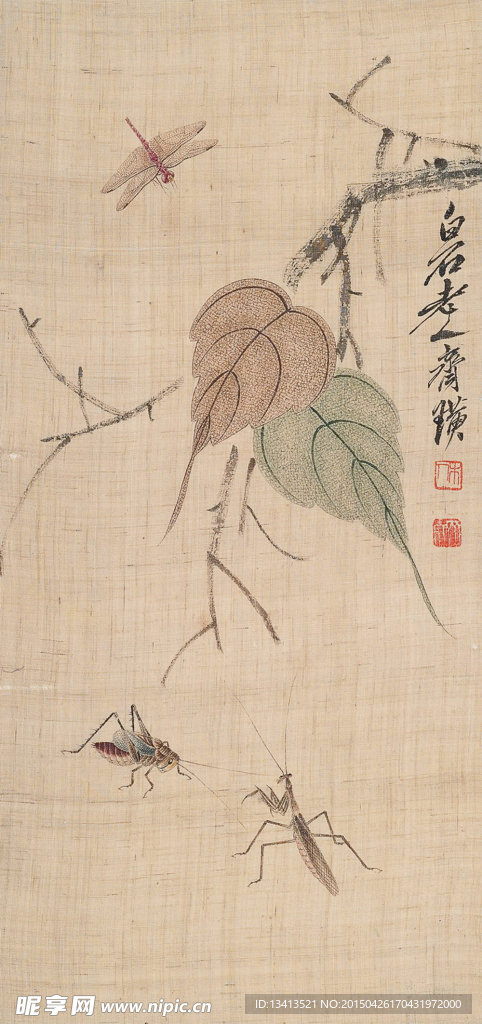 白石老人齊璜
昵享网 www.nipic.cn
ID:13413521 NO:20150426170431972000